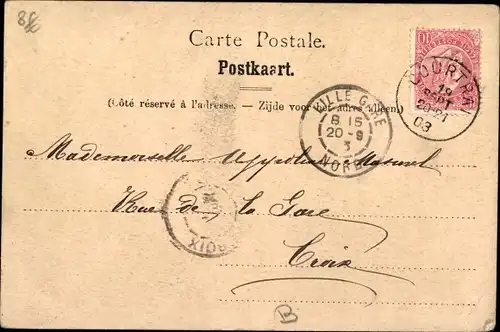 8F
Carte Postale.
Postkaart.
(Côté réservé à l'adresse. — Zijde voor het adres alleen)
10
COURTRAI
19
SEPT
20-21
03
LILLE GARE
8 15
20-9
3
NORD
Mademoiselle
Rue de la Gare
CROIX
Croix
B